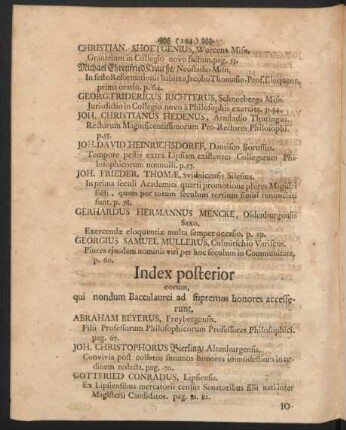 ( 104 )
CHRISTIAN. SHOETGENIUS, Wurcena Misn.
Granarium in Collegio novo factum, pag. 53.
Michael Ehrenfried Krause, Neustadio Misn.
In festo Reformationis habita a Jacobo Thomasio, Prof. Eloquent.
prima oratio. p. 64.
GEORG. FRIDERICUS RICHTERUS, Schneeberga Misn.
Jurisdictio in Collegio novo à Philosophis exercita. p. 54.
JOH. CHRISTIANUS HEDENUS, Arnstadio Thuring.
Rectorum Magnificentissimorum Pro-Rectores Philosophi.
p. 55.
JOH. DAVID HEINRICHSDORFF, Dantisco Borussus.
Tempore pestis extra Lipsiam exsistentes Collegarum Phi-
losophicorum nonnulli. p. 57.
JOH. FRIEDER. THOMÆ, Svidnicensis Silesius.
In prima seculi Academici quarti promotione plures Magistri
facti, quam per totum seculum tertium simul renunciati
sunt. p. 58.
GERHARDUS HERMANNUS MENCKE, Oldenburgensis
Saxo.
Exercendæ eloquentiæ multa semper occasio. p. 59.
GEORGIUS SAMUEL MULLERUS, Culmitichio Variscus.
Plures ejusdem nominis viri per hoc seculum in Communitate,
p. 60.
Index posterior
eorum,
qui nondum Baccalaurei ad supremos honores accesse-
runt.
ABRAHAM BEYERUS, Freybergensis.
Filii Professorum Philosophicorum Professores Philosophici.
pag. 67.
JOH. CHRISTOPHORUS Bierling, Altenburgensis.
Convivia post collatos summos honores immodestiora in or-
dinem redacta, pag. 70.
GOTTFRIED CONRADUS, Lipsiensis.
Ex Lipsiensibus mercatorii census Senatoribus filii nati inter
Magisterii Candidatos. pag. 81. 82.
JO-